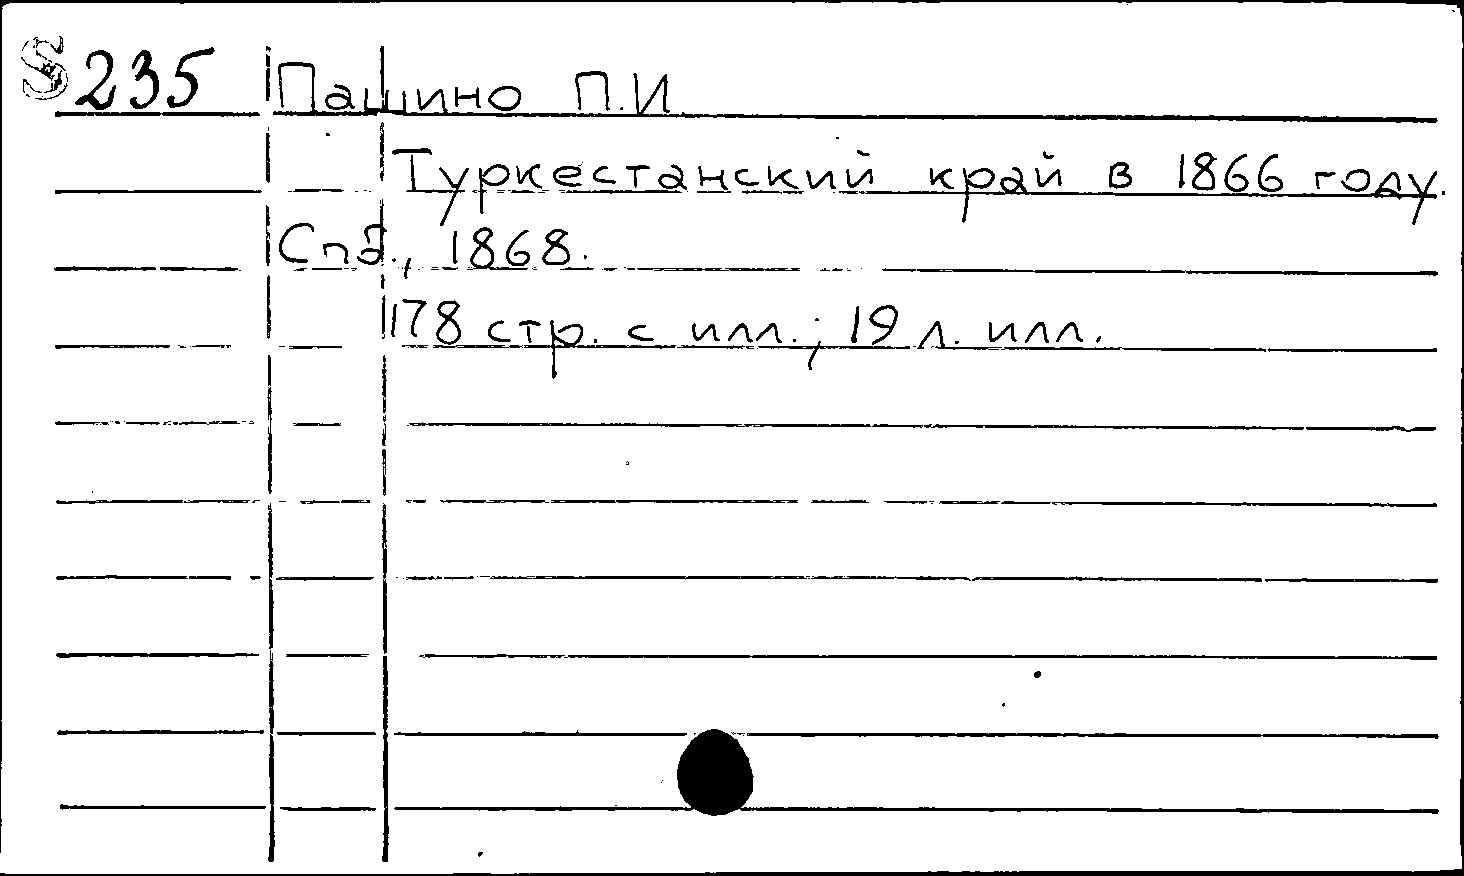 S 235 Пашино П.И
Туркестанский край в 1866 году.
Спб., 1868.
178 стр. с илл.; 19 л. илл.